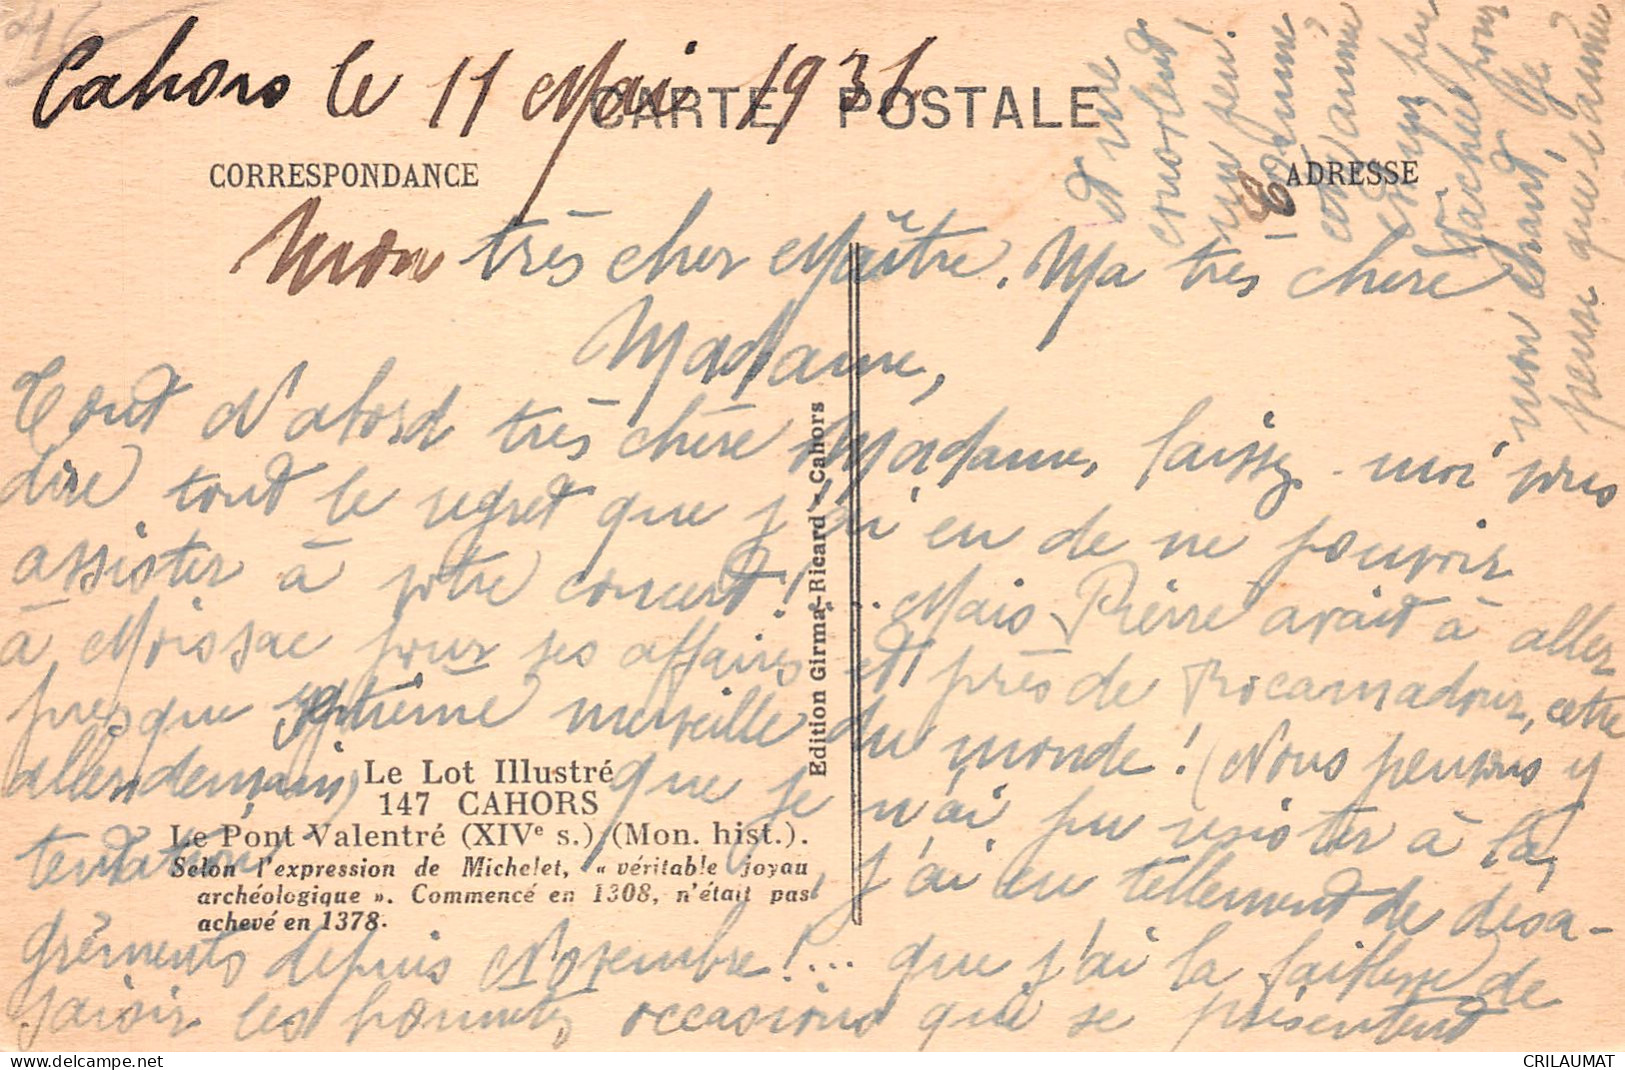 Cahors le 11 Mai 1931
CARTE POSTALE
CORRESPONDANCE
ADRESSE
Mon très cher Maître. Ma très chère
Madame,
Tout d'abord très chère Madame, laissez-moi vous
dire tout le regret que j'ai eu de ne pouvoir
assister à votre concert!... Mais Pierre avait à aller
à Moissac pour ses affaires et près de Rocamadour, cette
presque septième merveille du monde! (Nous pensons y
aller demain) que je n'ai pu résister à la
tentation, j'ai eu tellement de désa-
gréments depuis Novembre!... que j'ai la faiblesse de
saisir les bonnes occasions qui se présentent
et me
consolent
un peu!
Comme
cet année
pour
mon chant, Je
pense que l'année
Edition Girma-Ricard - Cahors
Le Lot Illustré
147 CAHORS
Le Pont Valentré (XIVe s.) (Mon. hist.).
Selon l'expression de Michelet, « véritable joyau
archéologique ». Commencé en 1308, n'était pas
achevé en 1378.
CRILAUMAT